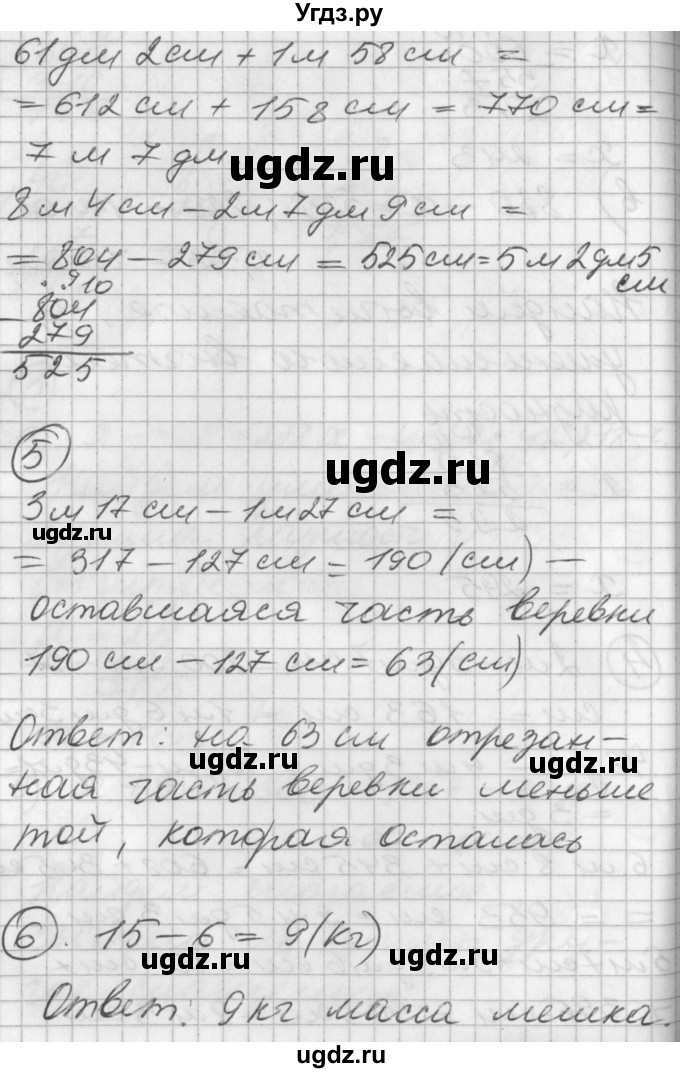 Угдз.ру
61дм 2см + 1м 58см =
= 612см + 158см = 770см =
7м 7дм
ugdz.ru
8м 4см - 2м 7дм 9см =
= 804 - 279см = 525см = 5м 2дм 5
см
. 9 10
804
- 279
525
5
ugdz.ru
3м 17см - 1м 27см =
ugdz.ru
= 317 - 127см = 190(см) —
оставшаяся часть веревки
ugdz.ru
190см - 127см = 63(см)
Ответ: на 63см отрезан-
ugdz.ru ugdz.ru
ная часть веревки меньше
той, которая осталась
6. 15 - 6 = 9(кг)
ugdz.ru ugdz.ru
Ответ: 9кг масса мешка.
ugdz.ru